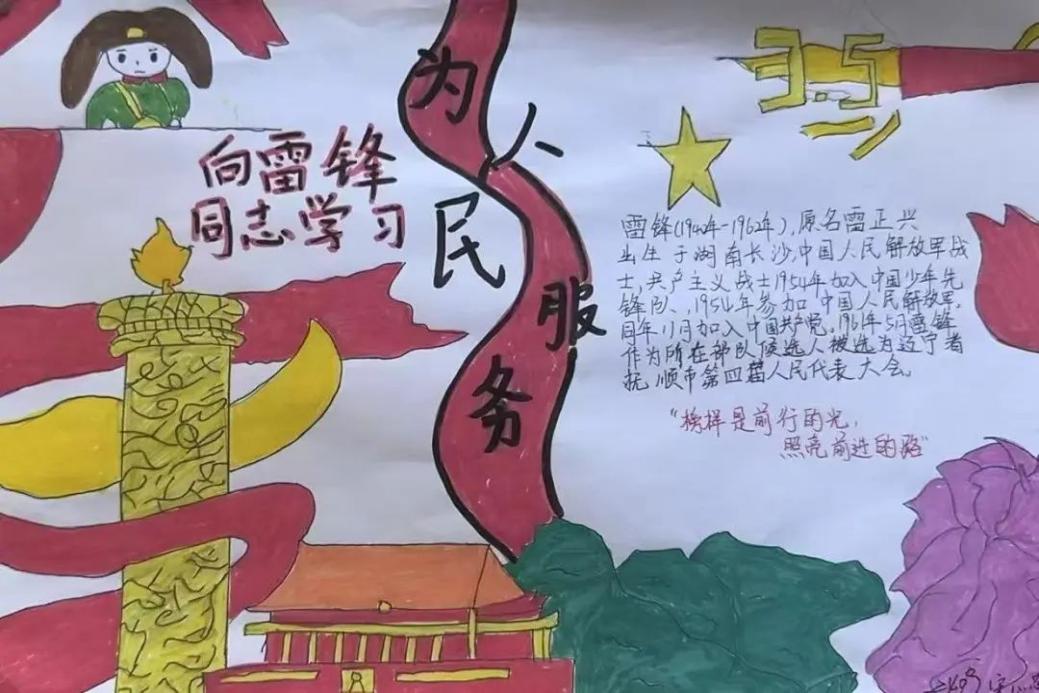 向雷锋
同志学习
为人民服务
3.5
雷锋(1940年-1962年),原名雷正兴
出生于湖南长沙,中国人民解放军战
士,共产主义战士1954年加入中国少年先
锋队、1954年参加中国人民解放军,
同年11月加入中国共产党。1961年5月雷锋
作为所在部队候选人被选为辽宁省
抚顺市第四届人民代表大会。
“榜样是前行的光,
照亮前进的路”